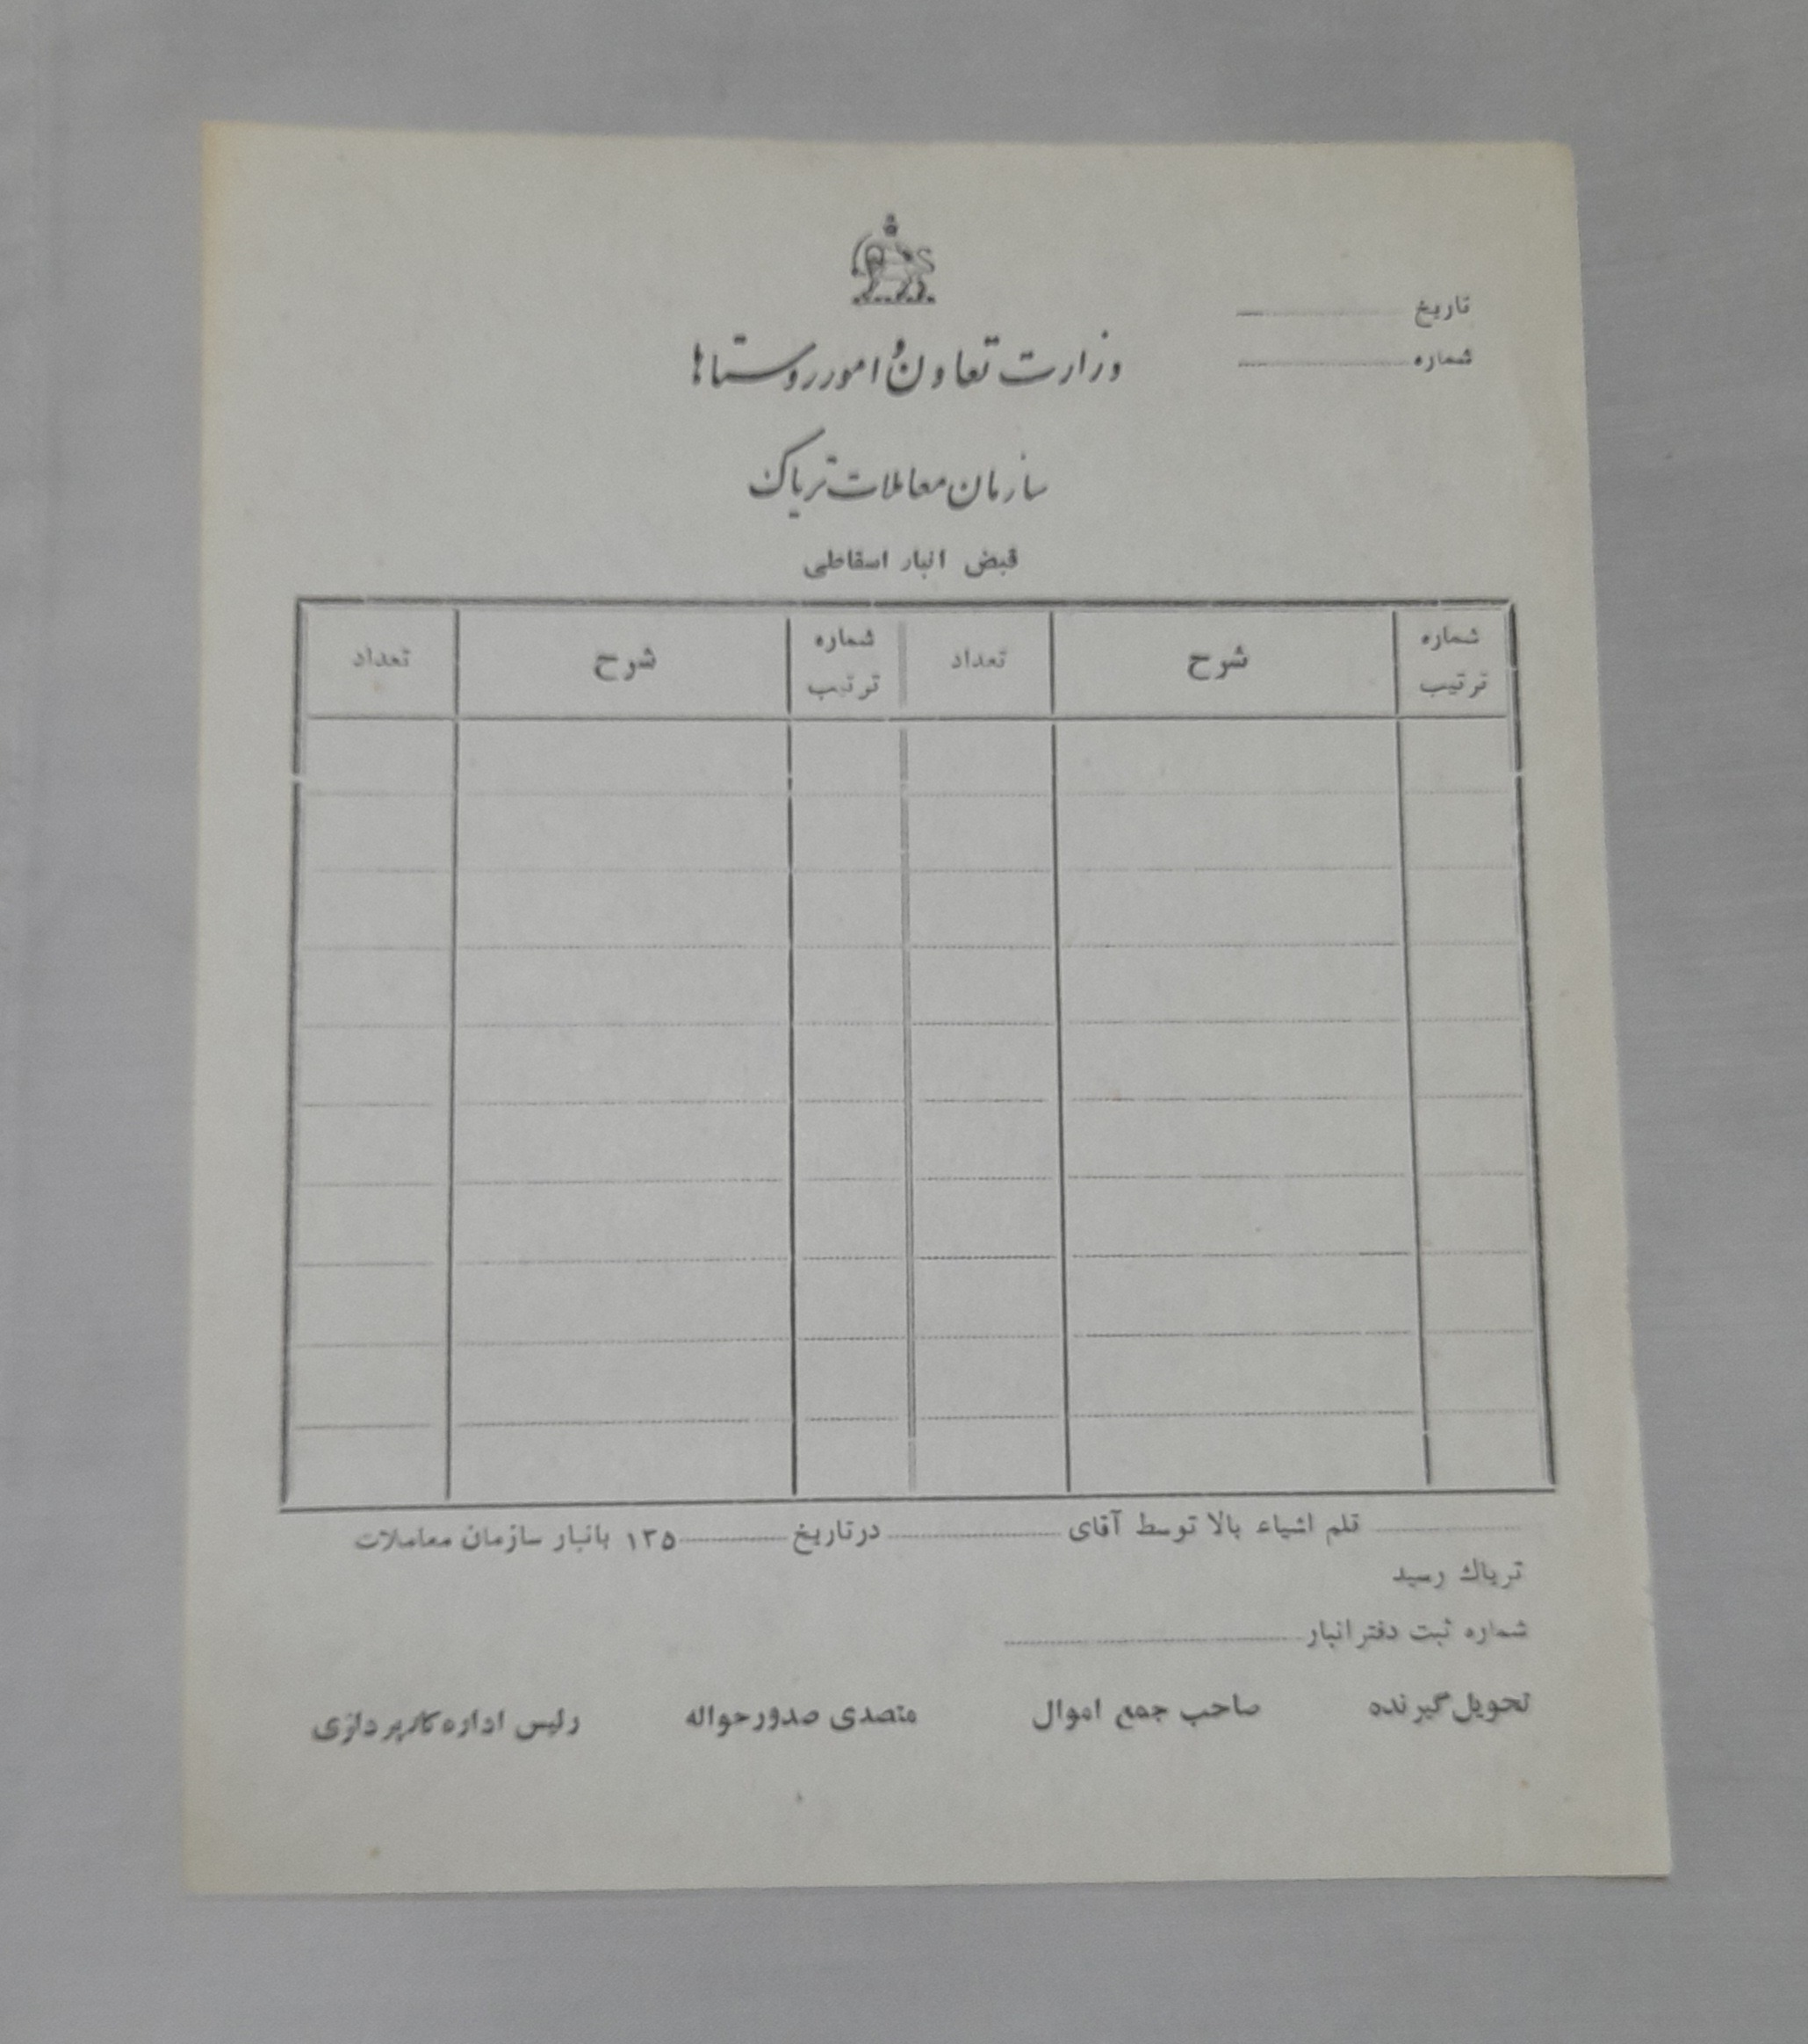 تاریخ
شماره
وزارت تعاون و امور روستاها
سازمان معاملات تریاک
قبض انبار اسقاطی
شماره ترتیب شرح تعداد شماره ترتیب شرح تعداد
قلم اشیاء بالا توسط آقای در تاریخ ۱۳۵ بانبار سازمان معاملات
تریاك رسید
شماره ثبت دفتر انبار
تحویل گیرنده صاحب جمع اموال متصدی صدور حواله رئیس اداره کارپردازی